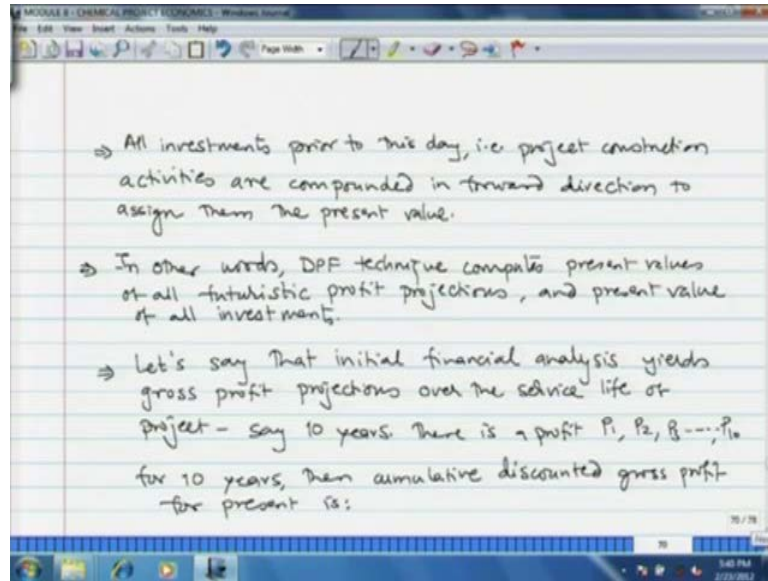 MODULE 8 - CHEMICAL PROJECT ECONOMICS - Windows Journal
File Edit View Insert Actions Tools Help
Page Width
⇒ All investments prior to this day, i.e. project construction
activities are compounded in forward direction to
assign them the present value.
⇒ In other words, DPF technique computes present values
of all futuristic profit projections, and present value
of all investments.
⇒ Let's say that initial financial analysis yields
gross profit projections over the service life of
project - say 10 years. There is a profit P1, P2, P3 ----, P10
for 10 years, then cumulative discounted gross profit
for present is:
70 / 78
70
5:40 PM
2/23/2012